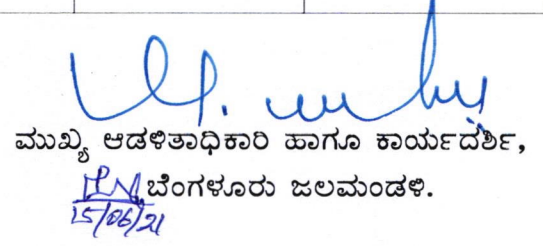 ಮುಖ್ಯ ಆಡಳಿತಾಧಿಕಾರಿ ಹಾಗೂ ಕಾರ್ಯದರ್ಶಿ,
ಬೆಂಗಳೂರು ಜಲಮಂಡಳಿ.
15/06/21